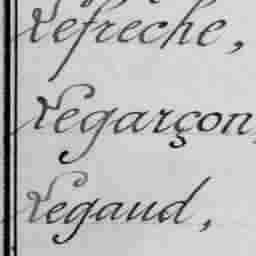 Lefreche,
Legarçon,
Legaud,